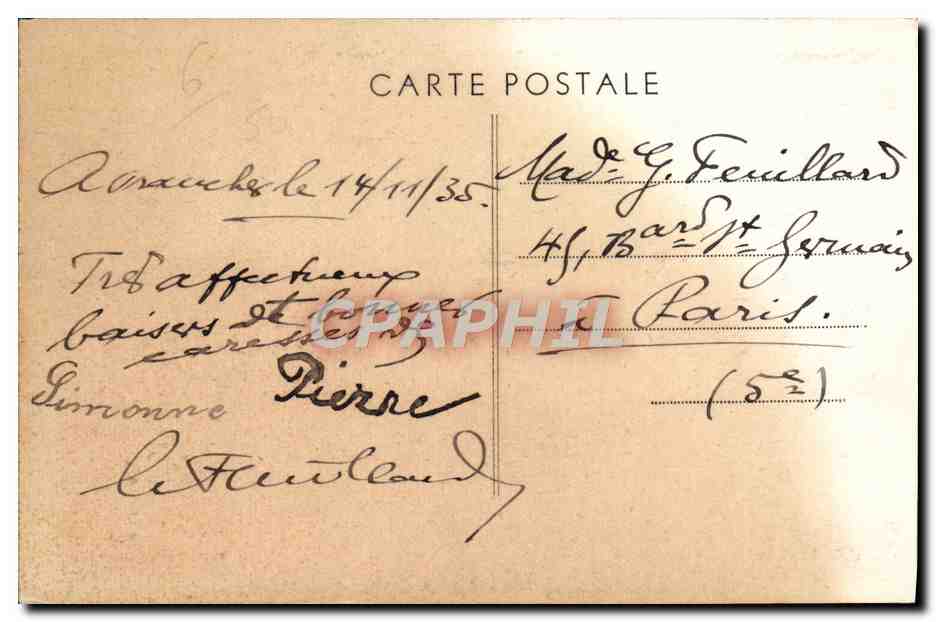 CARTE POSTALE
Avranches le 14/11/35.
Très affectueux
baisers et bonnes
caresses de
Simonne Pierre
G Feuillard
Made G. Feuillard
45, Bard St Germain
à Paris.
(5e)
CPAPHIL